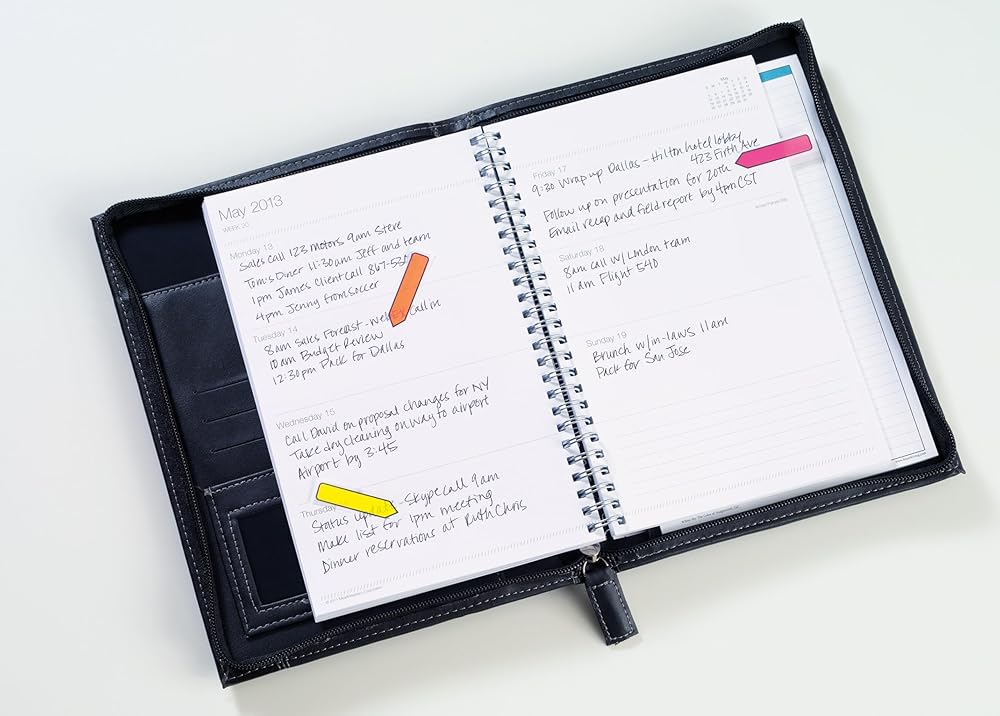 May 2013
WEEK 20
Monday 13
Sales call 123 Motors 9am Steve
Tom's Diner 11:30am Jeff and team
1pm James Client call 867-53
4pm Jenny from soccer
Tuesday 14
8am Sales Forecast - call in
10am Budget Review
12:30pm Pack for Dallas
Wednesday 15
Call David on proposal changes for NY
Take dry cleaning on way to airport
Airport by 3:45
Thursday
Status - Skype call 9am
Make list for 1pm meeting
Dinner reservations at Ruth Chris
May
Friday 17
9:30 Wrap up Dallas - Hilton hotel lobby
423 Firth Ave
Follow up on presentation for 20th
Email recap and field report by 4pm CST
Saturday 18
8am call w/ London team
11am Flight 540
Sunday 19
Brunch w/in-laws 11am
Pack for San Jose